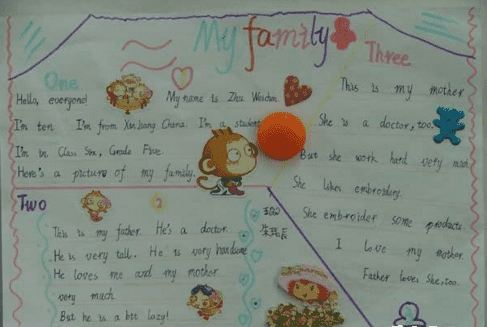 My family
One
Hello, everyone! My name is Zhu
I'm ten. I'm from Xin Jiang China. I'm a student
I'm in Class Six, Grade Five.
Here's a picture of my family.
Two
2
This is my father. He's a doctor.
He is very tall. He is very handsome
He loves me and my mother
very much
But he is a bit lazy!
Three
This is my mother
She is a doctor, too.
But she work hard very
She likes embroidery.
She embroider some products.
I love my mother.
Father love She, too.